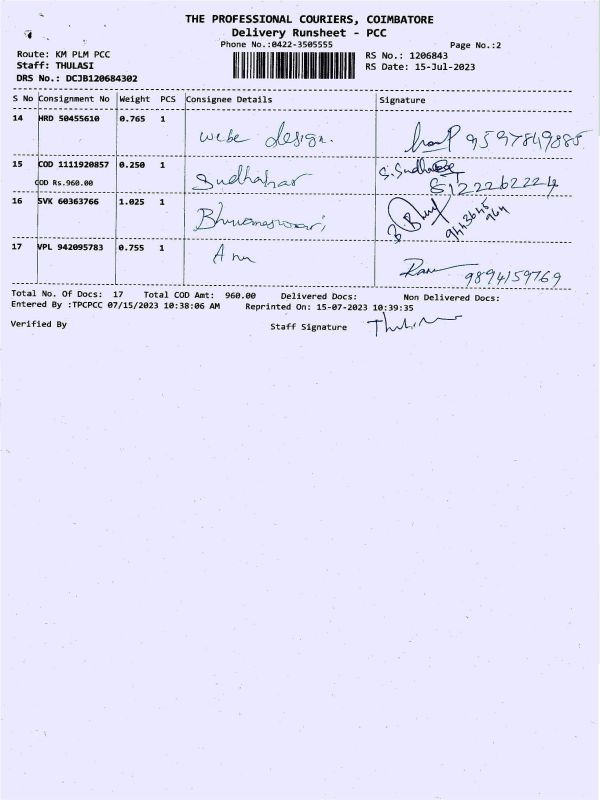 THE PROFESSIONAL COURIERS, COIMBATORE
Delivery Runsheet - PCC
Phone No.:0422-3505555 Page No.:2
Route: KM PLM PCC RS No.: 1206843
Staff: THULASI RS Date: 15-Jul-2023
DRS No.: DCJB120684302
S No Consignment No Weight PCS Consignee Details Signature
14 HRD 50455610 0.765 1 webe design. 9597849885
15 COD 1111920857 0.250 1 Sudhahar S. Sudhahar
COD Rs.960.00 8122262224
16 SVK 60363766 1.025 1 Bhuvaneswari 9443645
964
17 VPL 942095783 0.755 1 Ann
9894159769
Total No. Of Docs: 17 Total COD Amt: 960.00 Delivered Docs: Non Delivered Docs:
Entered By :TPCPCC 07/15/2023 10:38:06 AM Reprinted On: 15-07-2023 10:39:35
Verified By Staff Signature